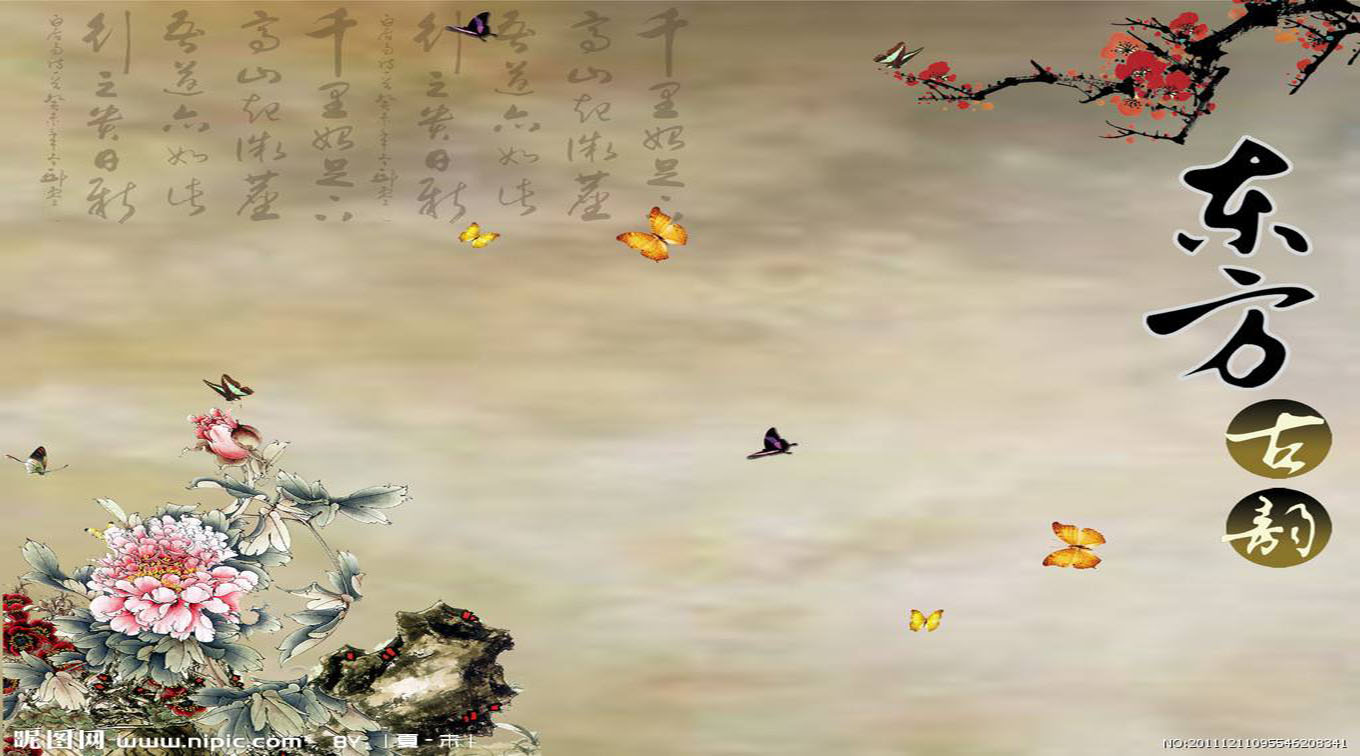 东方
古
韵
千里始足下
高山起微尘
吾道亦如此
行之贵日新
千里始足下
高山起微尘
吾道亦如此
行之贵日新
昵图网 www.nipic.com BY |夏-末|
NO:20111211095546208341